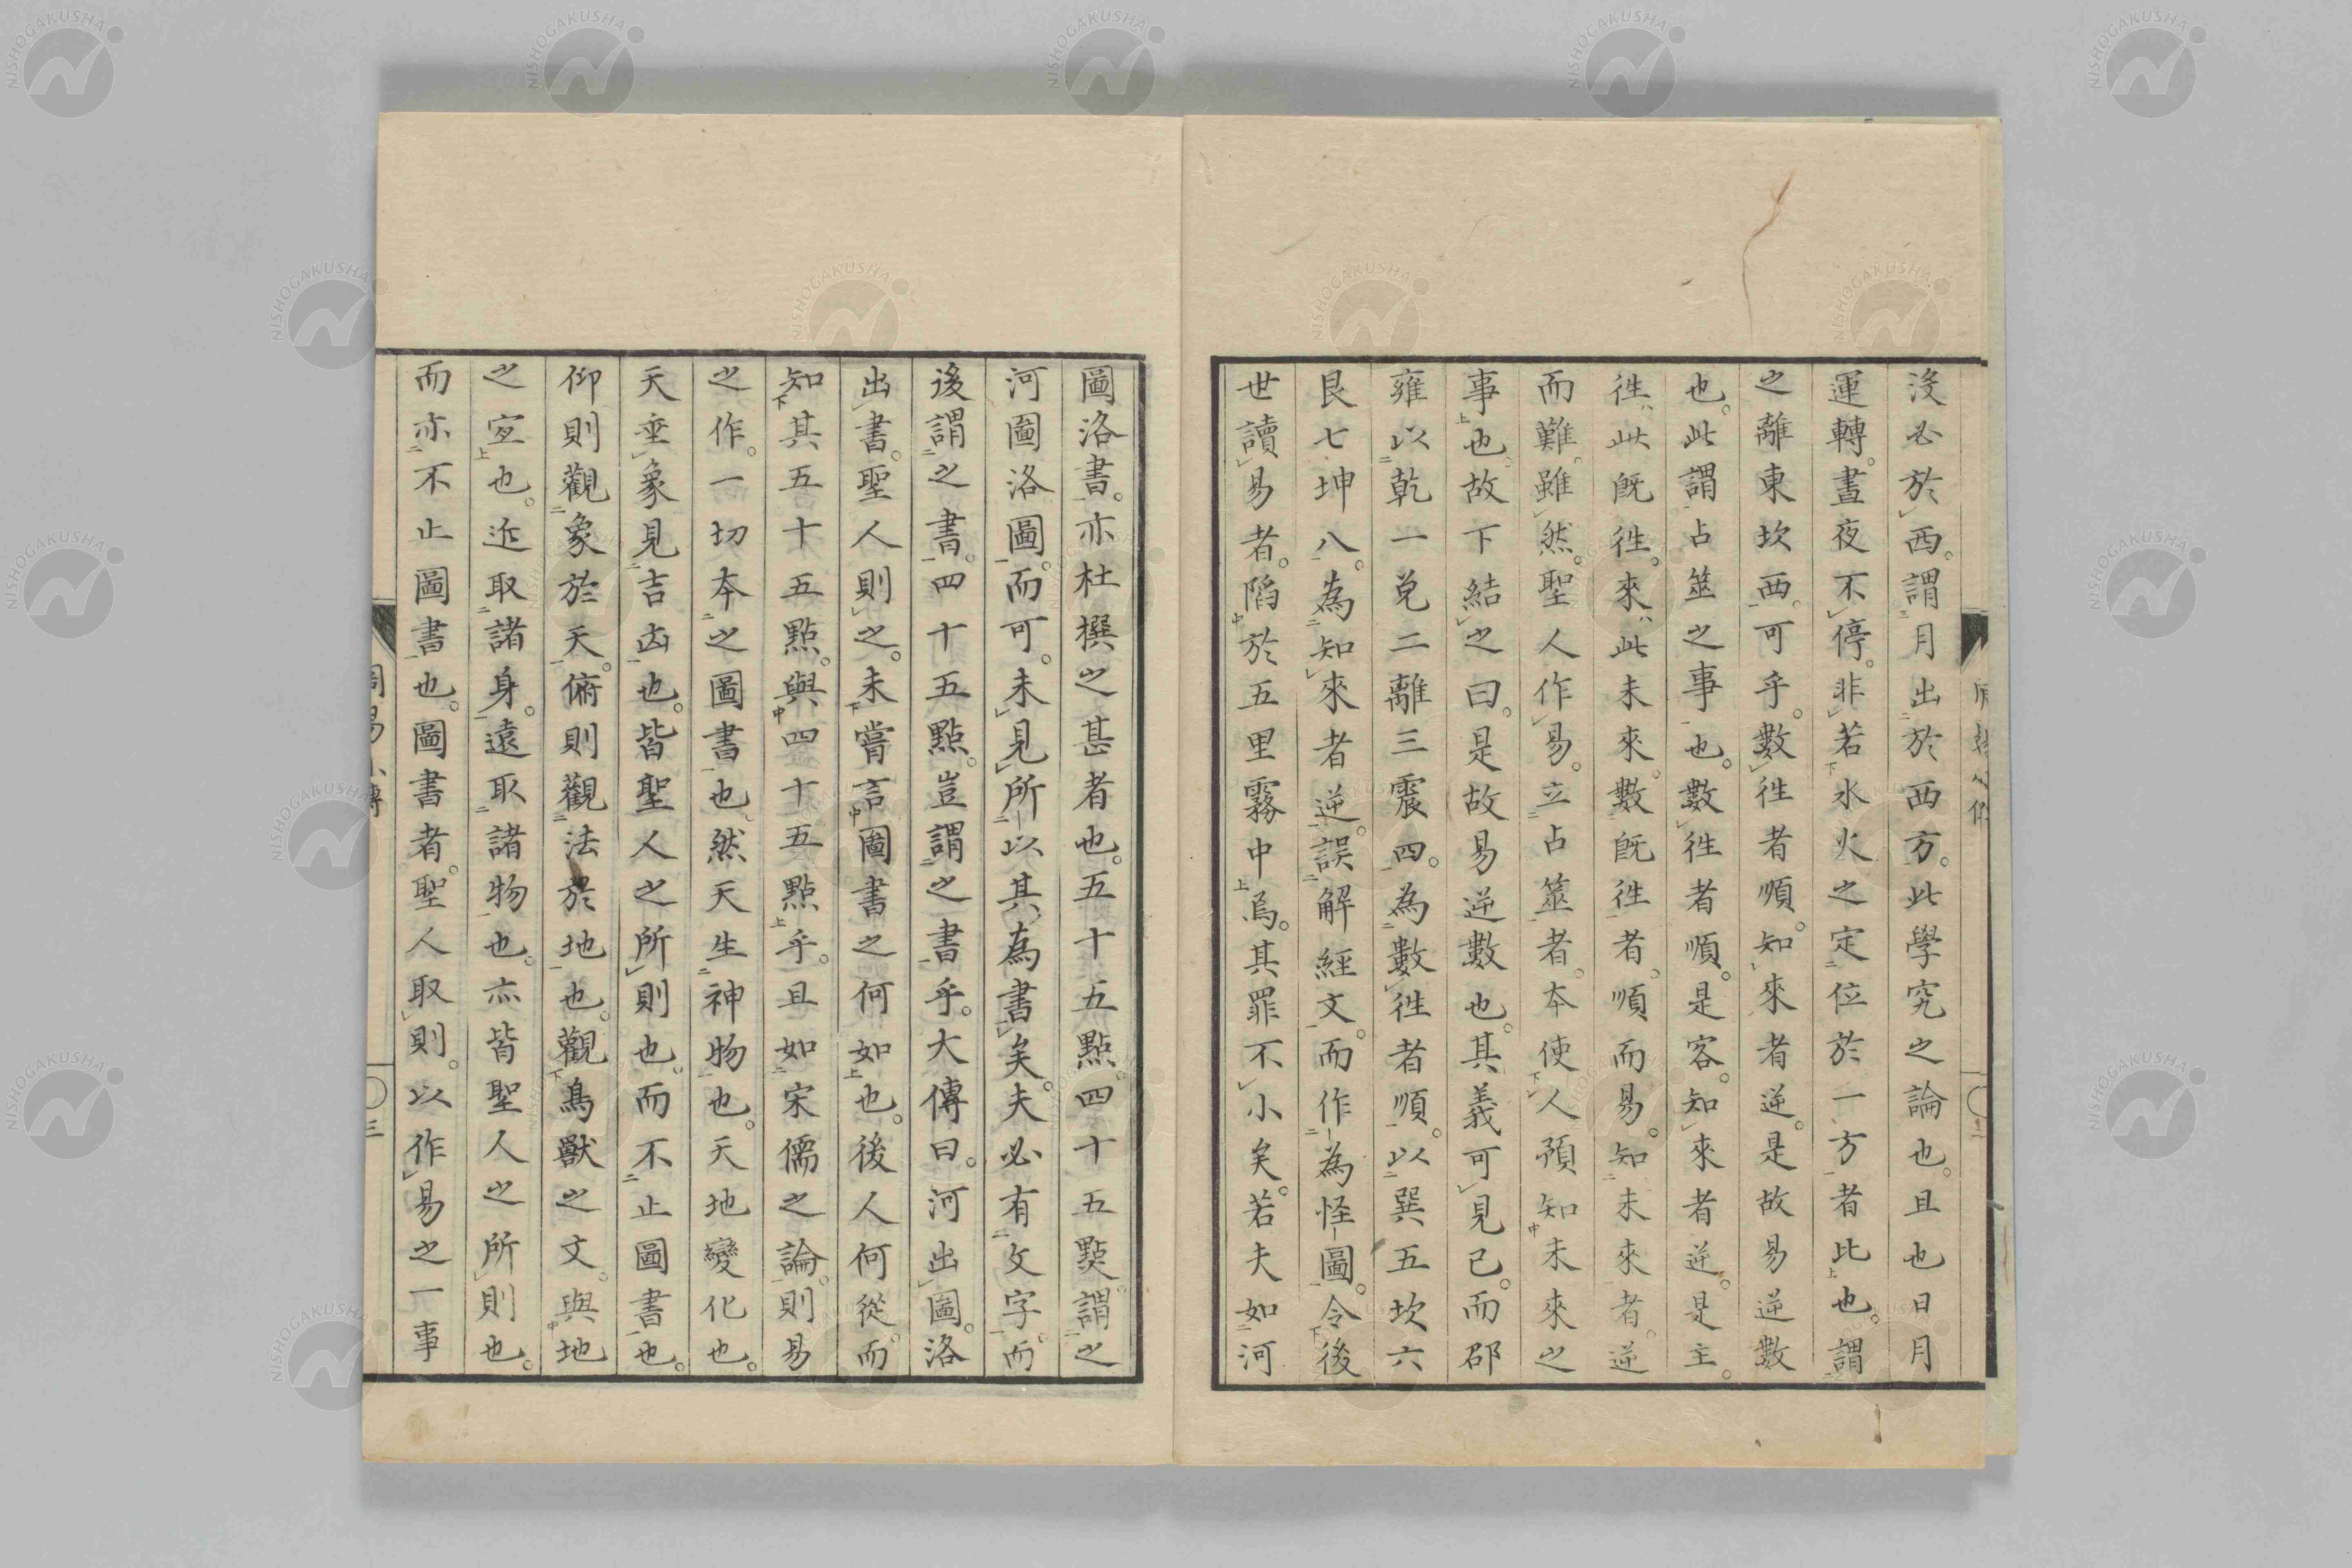 沒必於西。謂月出於西方。此學究之論也。且也日月
運轉。晝夜不停。非若水火之定位於一方者比也。謂
之離東坎西。可乎。數徃者順。知來者逆。是故易逆數
也。此謂占筮之事也。數徃者順。是客。知來者逆。是主。
徃、此既徃。來、此未來。數既徃者。順而易。知未來者。逆
而難。雖然。聖人作易。立占筮者。本使人預知未來之
事也。故下結之曰。是故易逆數也。其義可見已。而邵
雍以乾一兌二離三震四。為數徃者順。以巽五坎六
艮七坤八。為知來者逆。誤解經文。而作為怪圖。令後
世讀易者。陷於五里霧中焉。其罪不小矣。若夫如河
圖洛書。亦杜撰之甚者也。五十五點。四十五點。謂之
河圖洛圖。而可。未見所以其為書矣。夫必有文字。而
後謂之書。四十五點。豈謂之書乎。大傳曰。河出圖。洛
出書。聖人則之。未嘗言圖書之何如也。後人何從而
知其五十五點。與四十五點乎。且如宋儒之論。則易
之作。一切本之圖書也。然天生神物也。天地變化也。
天垂象見吉凶也。皆聖人之所則也。而不止圖書也。
仰則觀象於天。俯則觀法於地也。觀鳥獸之文。與地
之宜也。近取諸身。遠取諸物也。亦皆聖人之所則也。
而亦不止圖書也。圖書者。聖人取則。以作易之一事
三
NISHOGAKUSHA